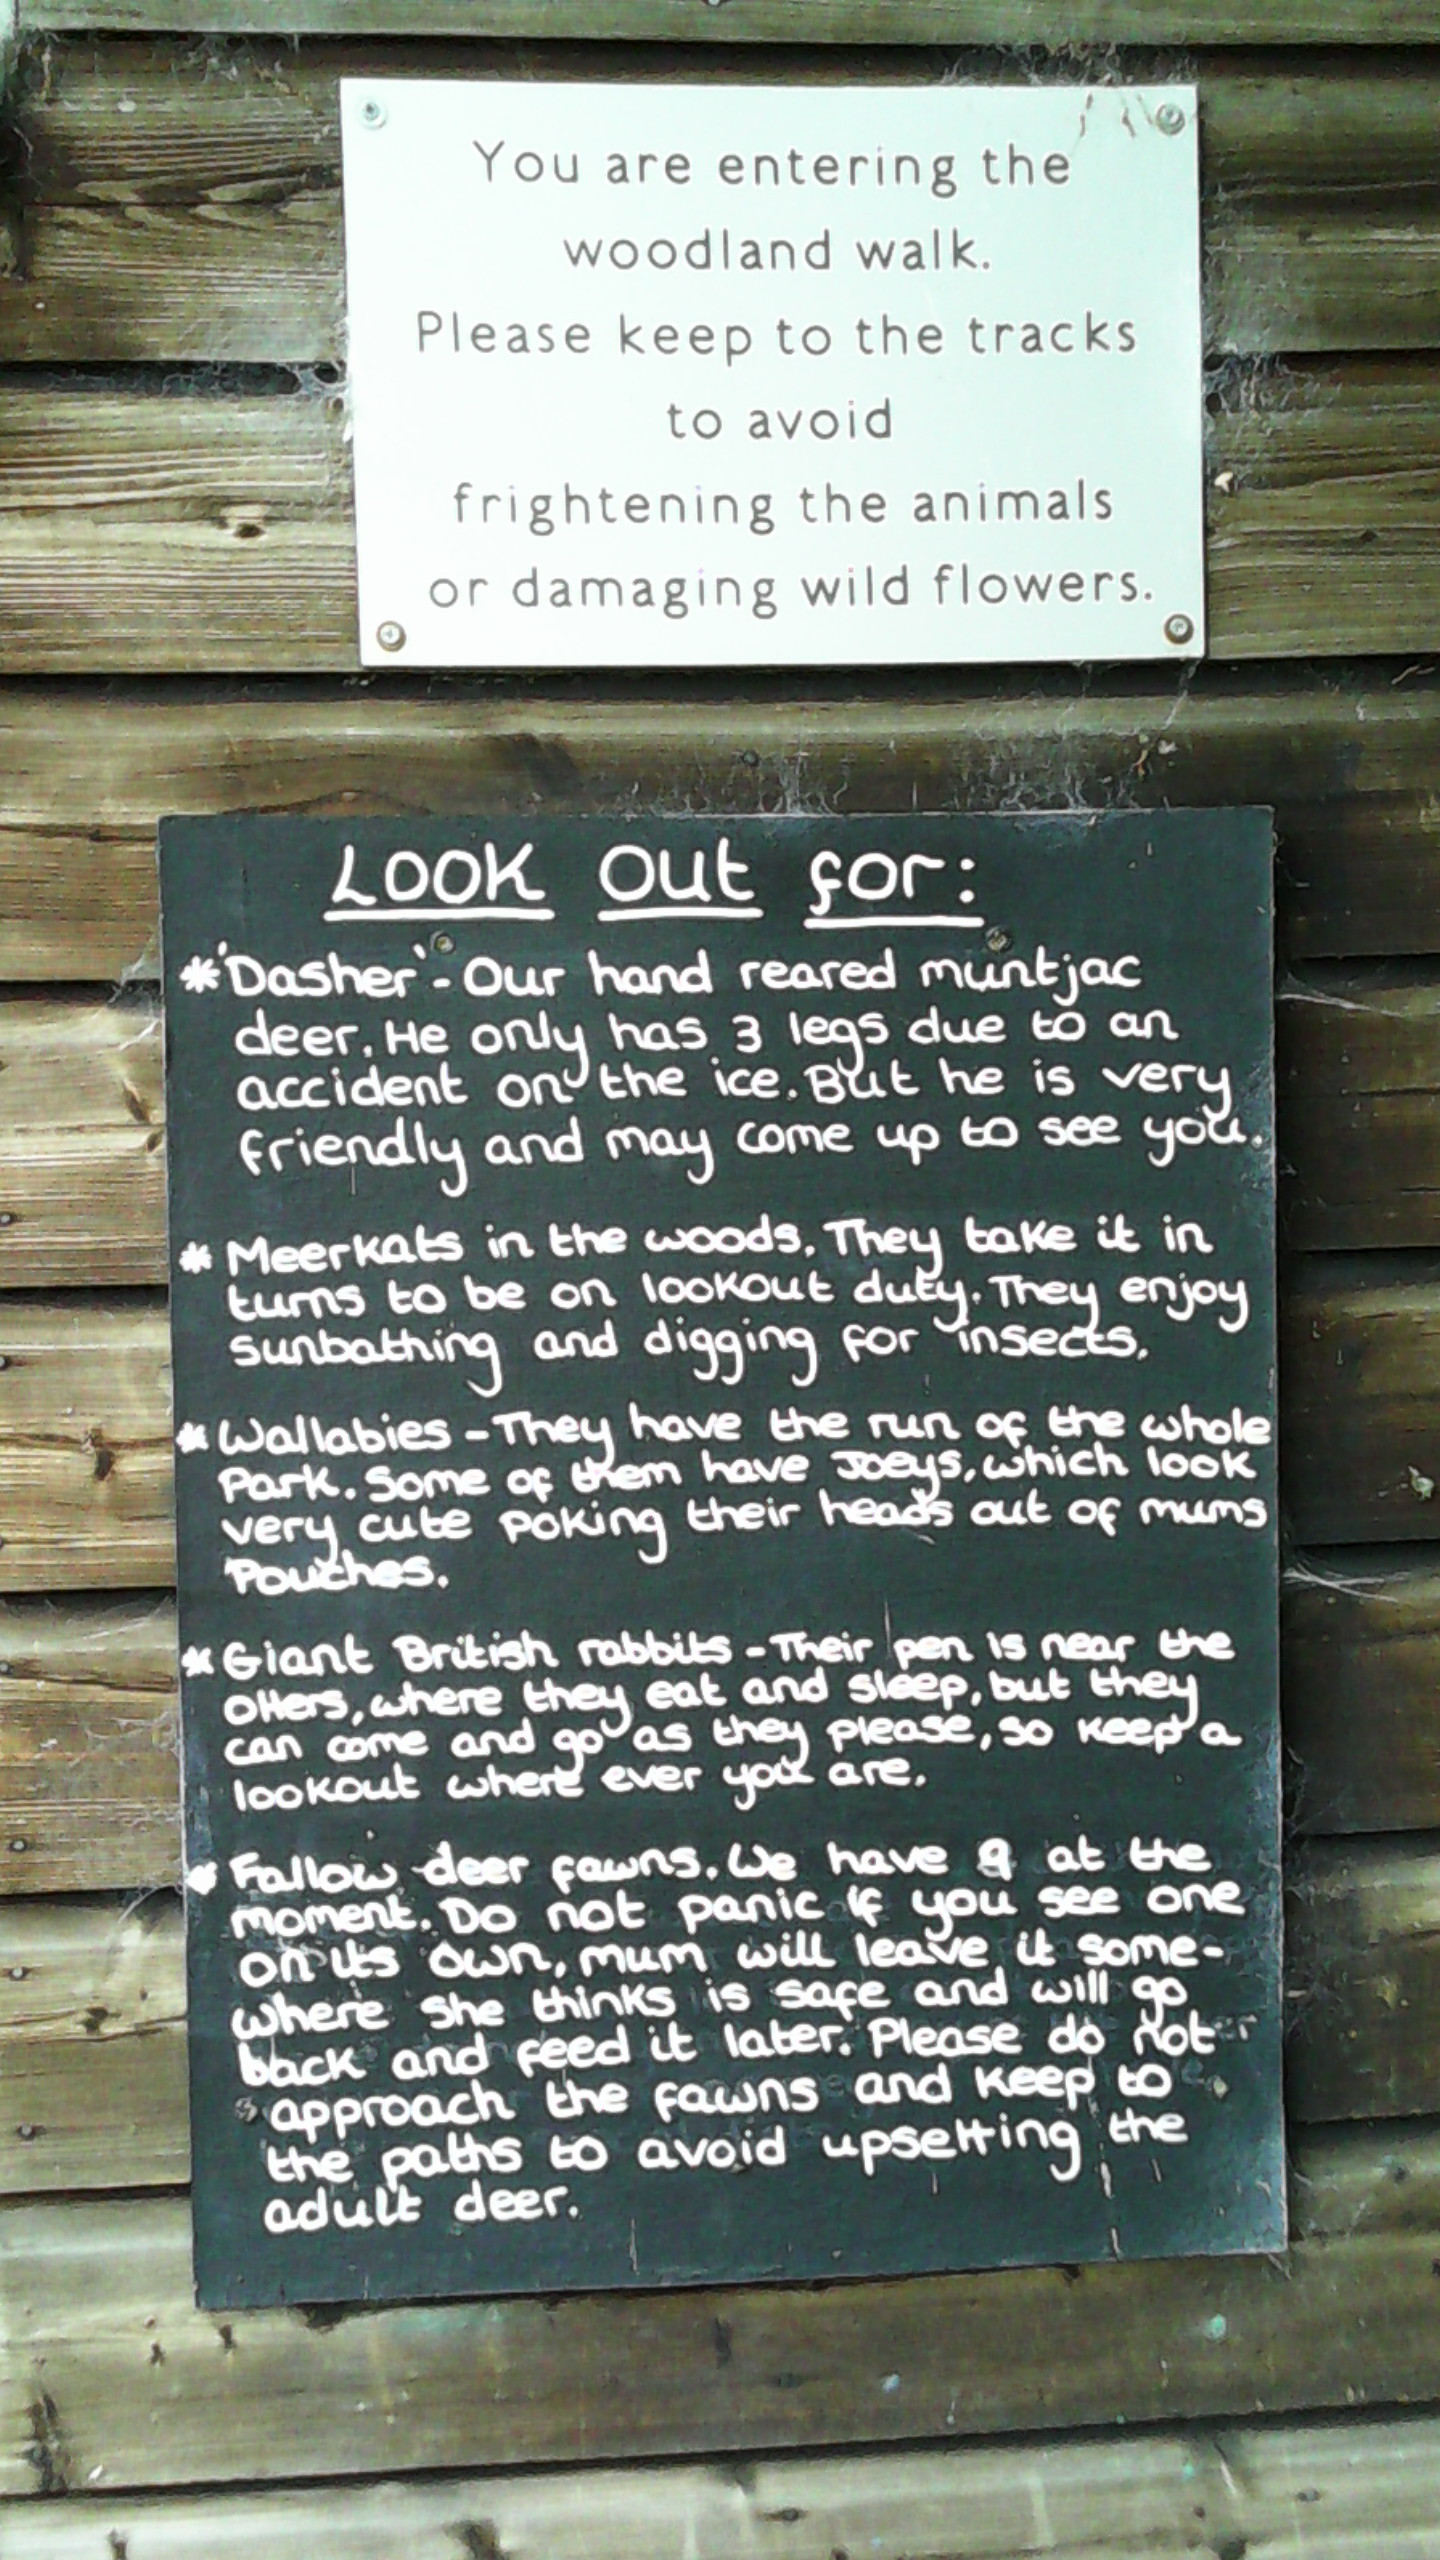 You are entering the
woodland walk.
Please keep to the tracks
to avoid
frightening the animals
or damaging wild flowers.
Look out for:
* 'Dasher' - Our hand reared muntjac
deer. He only has 3 legs due to an
accident on the ice. But he is very
friendly and may come up to see you.
* Meerkats in the woods. They take it in
turns to be on lookout duty. They enjoy
sunbathing and digging for insects.
* Wallabies - They have the run of the whole
Park. Some of them have Joeys, which look
very cute poking their heads out of mums
Pouches.
* Giant British rabbits - Their pen is near the
otters, where they eat and sleep, but they
can come and go as they please, so keep a
lookout where ever you are.
* Fallow deer fawns. We have 9 at the
moment. Do not panic if you see one
on its own, mum will leave it some-
where she thinks is safe and will go
back and feed it later. Please do not
approach the fawns and keep to
the paths to avoid upsetting the
adult deer.